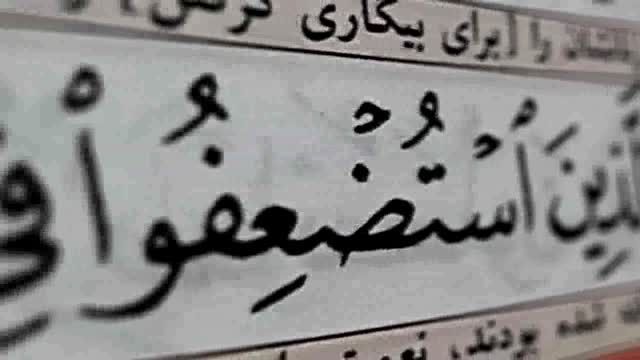 را [برای بیگاری گرفتن]
ٱلَّذِينَ ٱسْتُضْعِفُوا۟ فِي
شده بودند، نعمت